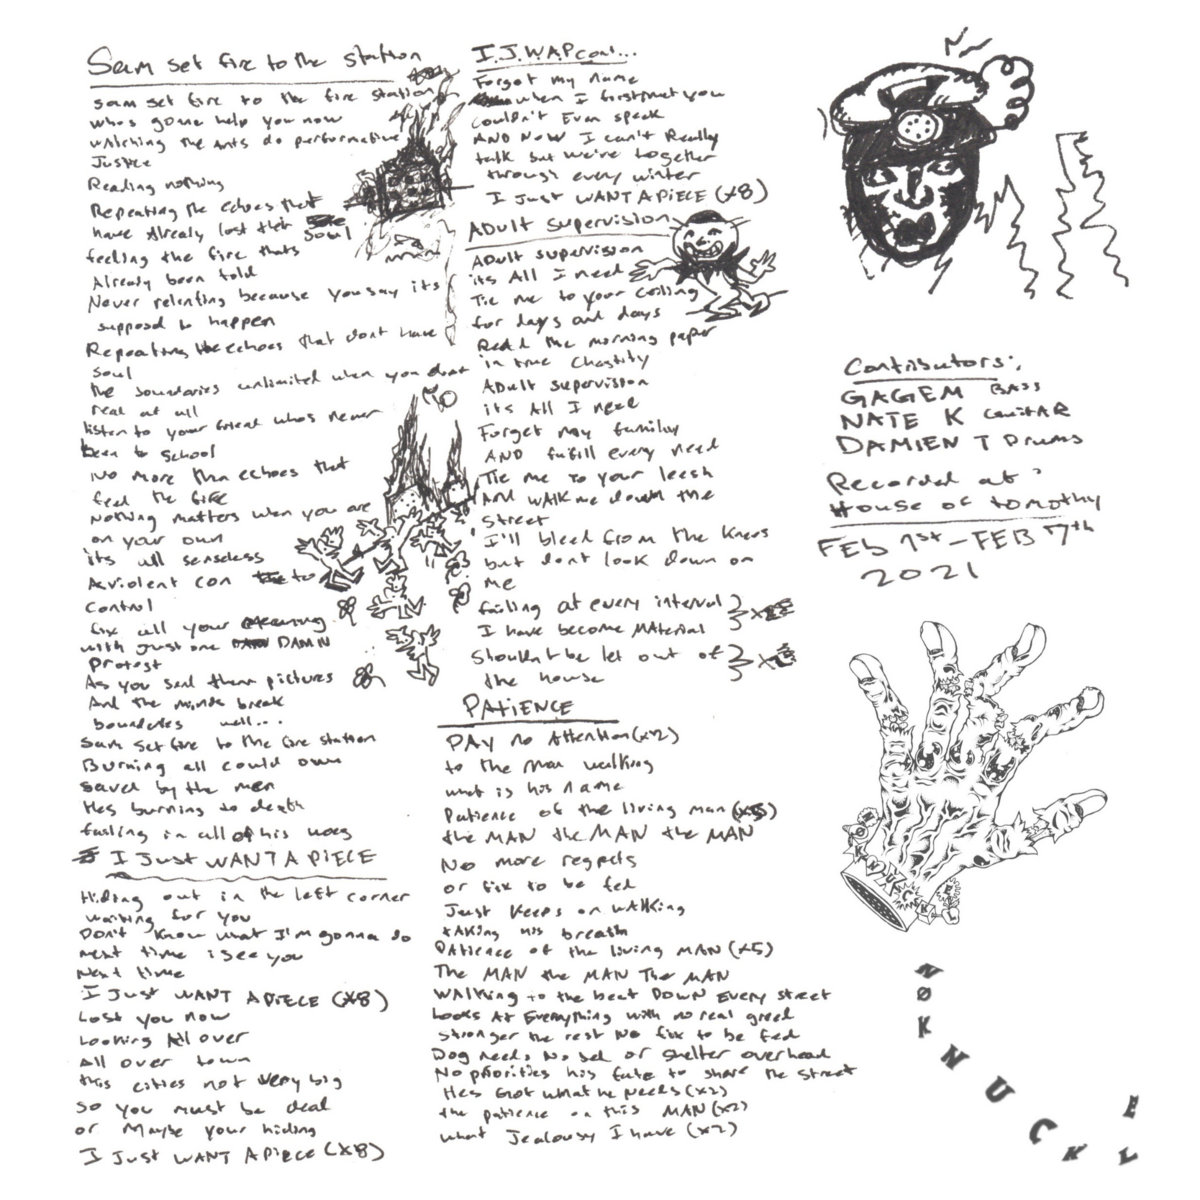 Sam set fire to the station
sam set fire to the fire station
who's gonna help you now
watching the ants do performative
Justice
Reading nothing
Repeating the echoes that
have Already lost their soul
feeling the fire thats
Already been told
Never relenting because you say its
supposd to happen
Repeating the echoes that dont have
soul
the boundaries unlimited when you dont
read at all
listen to your friend whos never
been to school
No more than echoes that
feel the fire
Nothing matters when you are
on your own
its all senseless
A violent con to
control
fix all your meaning
with just one DAMN
Protest
As you send them pictures
And the minds break
boundries well...
Sam set fire to the fire station
Burning all could own
saved by the men
Hes burning to death
failing in all of his woes
I Just WANT A PIECE
Hiding out in the left corner
waiting for you
Don't know what I'm gonna do
next time i see you
Next time
I Just WANT A PIECE (x8)
Lost you now
Looking All over
All over town
this cities not very big
so you must be dead
or Maybe your hiding
I Just WANT A PIECE (x8)
I.J.W.A.P cont...
Forgot my name
when I first met you
couldn't Even speak
AND NOW I can't Really
talk but we've together
through every winter
I Just WANT A PIECE (x8)
ADULT SUPERVISION
ADULT supervision
its All I need
Tie me to your ceiling
for days and days
Read the morning paper
in true chastity
ADULT supervision
its All I need
Forget my family
AND fulfill every need
Tie me to your leesh
And WALK me down the
street
I'll bleed from the knees
but dont look down on
me
failing at every interval
I have become MAterial
Shouldnt be let out of
the house
PATIENCE
PAY no Attention (x2)
to the man walking
what is his name
Patience of the living man
the MAN the MAN the MAN
No more regrets
or fix to be fed
Just keeps on WALKing
tAKing his breath
PAtience of the living MAN (x5)
The MAN the MAN The MAN
WALKing to the beat DOWN Every street
Looks At Everything with no real greed
stronger the rest No fix to be fed
Dog needs No bed or shelter overhead
No priorities his fate to share the street
Hes GOT what he NEEDS (x2)
the patience on this MAN (x2)
what Jealousy I have (x2)
Contributors:
GAGEM BASS
NATE K GuitAR
DAMIEN T Drums
Recorded at:
House of tomothy
FEb 1st - FEB 7th
2021
NØKNUCKLE